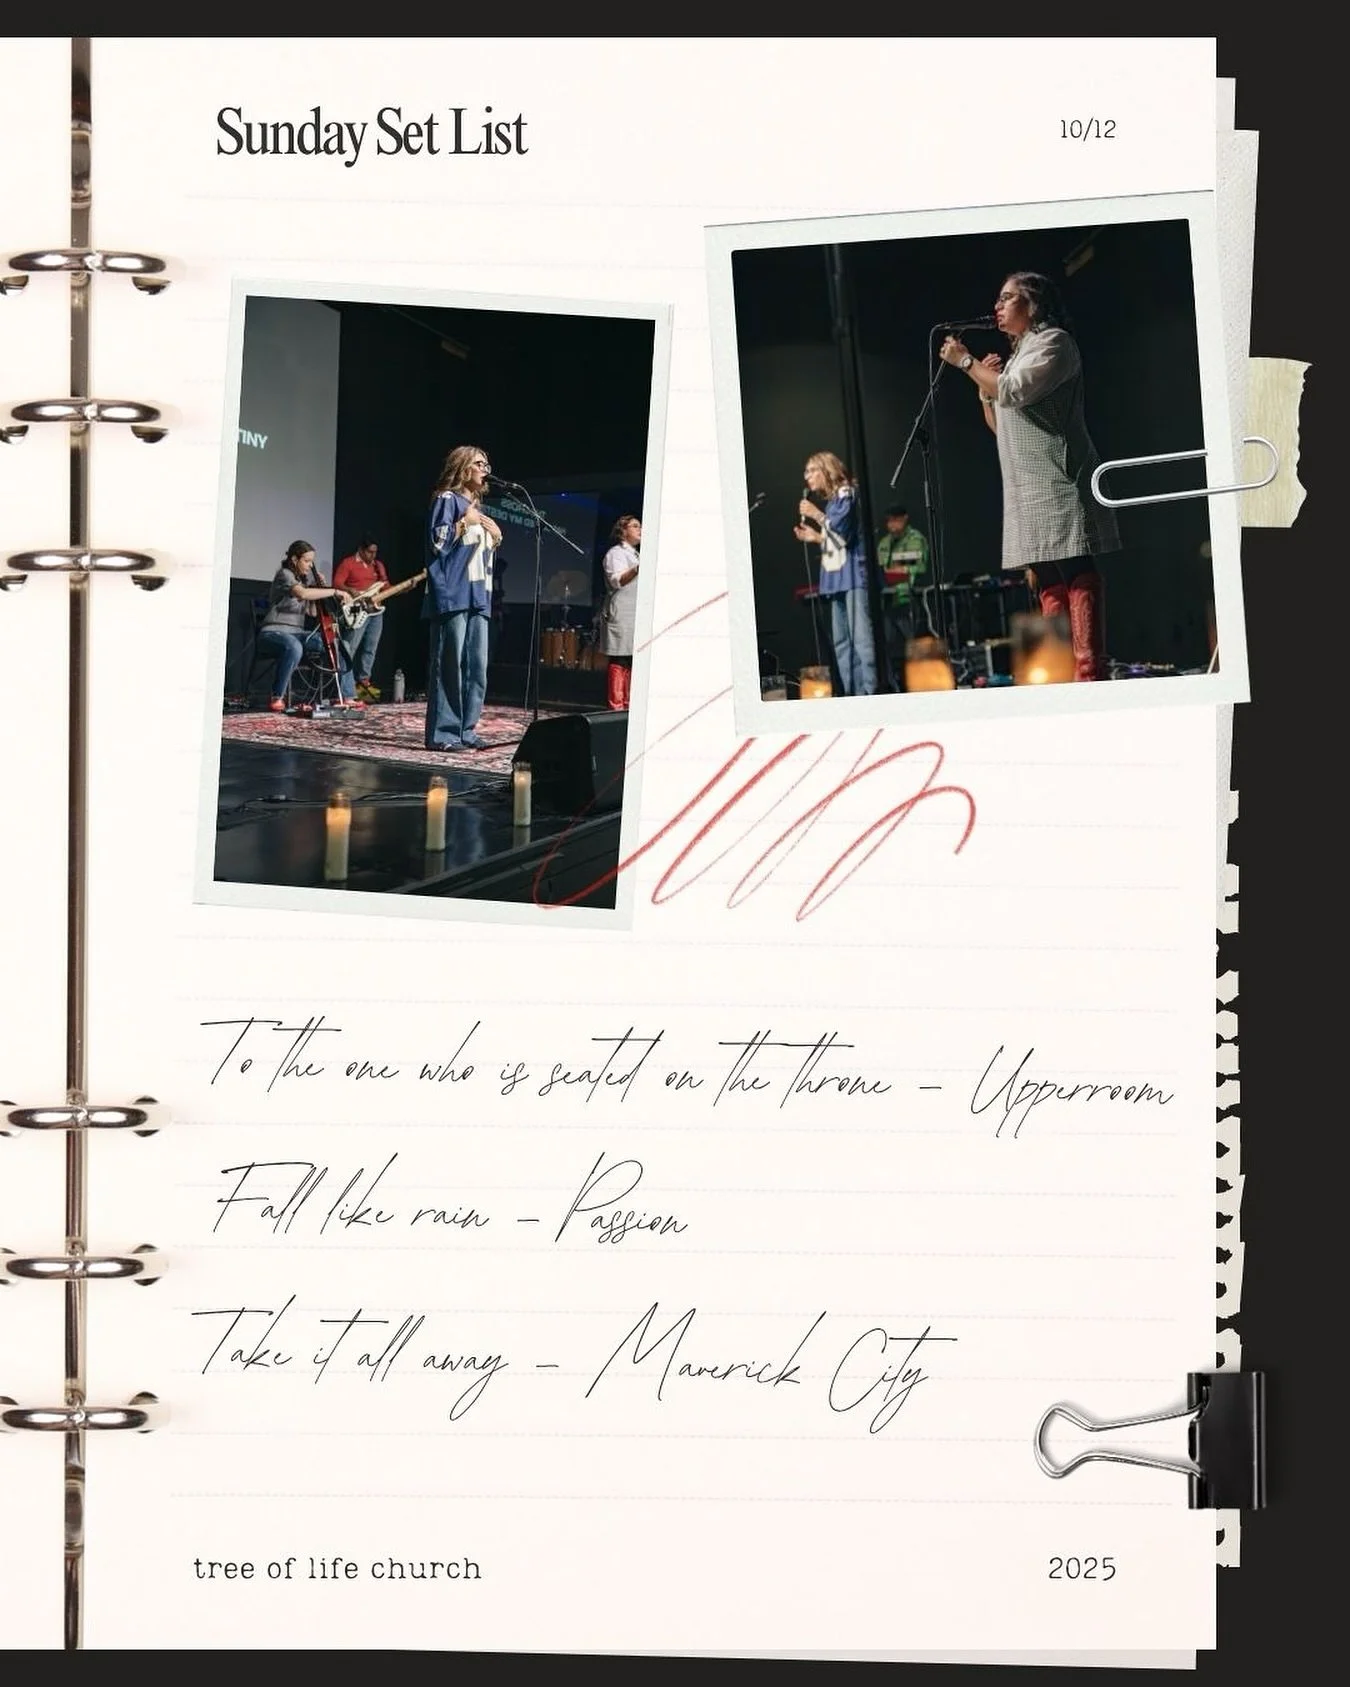 Sunday Set List
10/12
To the one who is seated on the throne – Upperroom
Fall like rain – Passion
Take it all away – Maverick City
tree of life church
2025